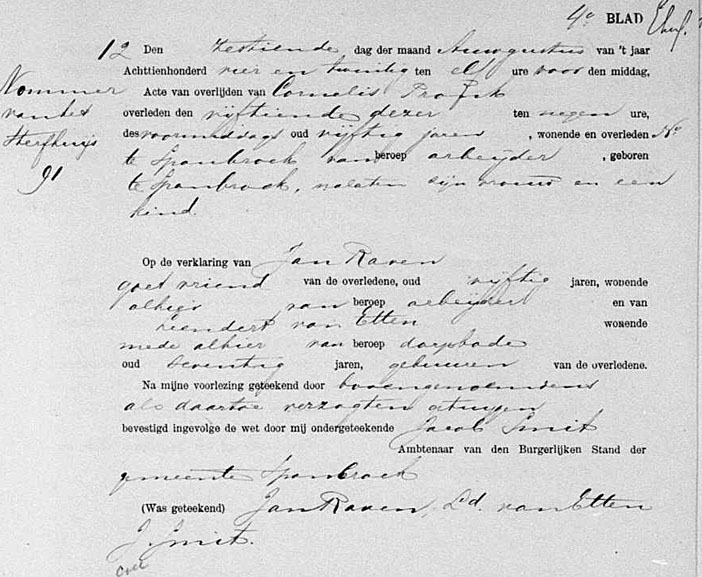 4e BLAD
12 Den zestiende dag der maand Auwgustus van 't jaar
Achttienhonderd vier en twintig ten elf ure voor den middag,
Nommer
van het
Sterfhuijs
91
Acte van overlijden van Cornelis
overleden den vijftiende dezer ten negen ure,
des voormiddags oud vijftig jaren, wonende en overleden No
te Spanbroek van beroep arbeijder, geboren
te Spanbroek, nalaten zijn vrouw en een
kind.
Op de verklaring van Jan Raven
goet vriend van de overledene, oud vijftig jaren, wonende
alhier van beroep arbeijder en van
Leendert van Etten wonende
mede alhier van beroep dorpbode
oud seventig jaren, gebuuren van de overledene.
Na mijne voorlezing geteekend door
als daartoe verzogten getuijgen
bevestigd ingevolge de wet door mij ondergeteekende Jacob Smit
Ambtenaar van den Burgerlijken Stand der
gemeente Spanbroek
(Was geteekend) Jan Raven, Ld. van Etten
J. Smit.